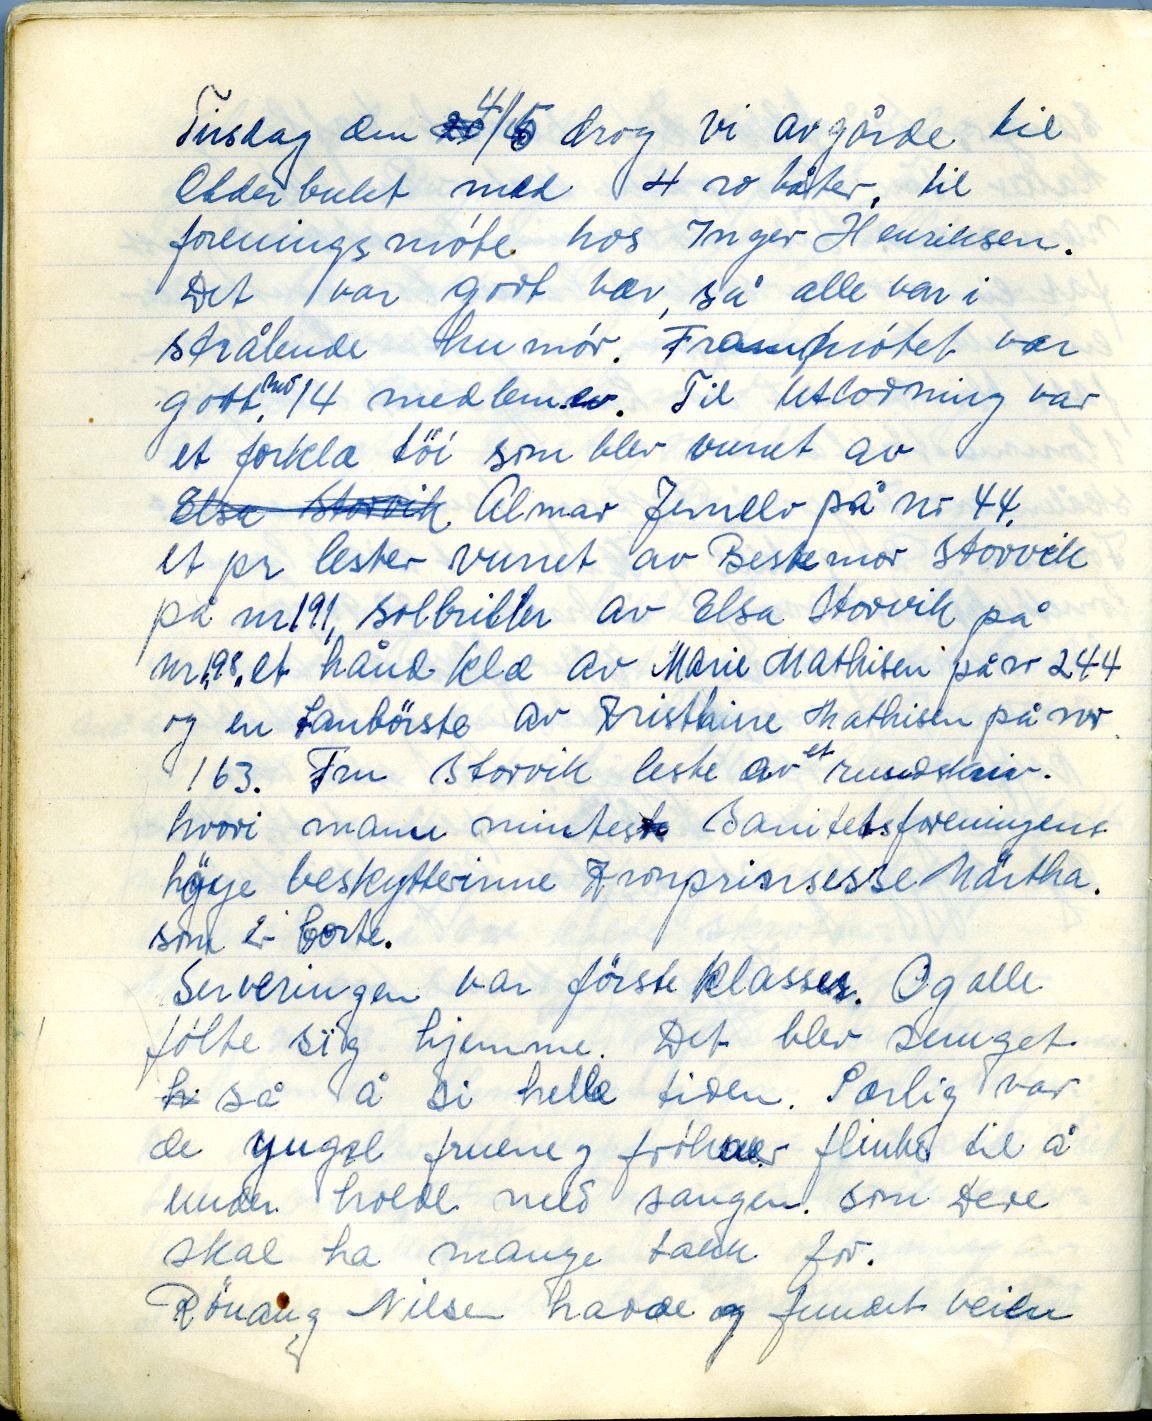 Tirsdag den 4/5 drog vi avgårde til
Olderbukt med 4 robåter, til
foreningsmöte hos Inger Henriksen.
Det var godt vær, så alle var i
strålende humör. Frammötet var
godt, med 14 medlemer. Til utlodning var
et forkla töi som blev vunet av
Elsa Storvik Almar Jernelv på nr 44,
et pr lester vunet av Bestemor Storvik
på nr 191, solbriller av Elsa Storvik på
nr 198, et håndklæ av Marie Mathisen på nr 244
og en tanbörste av Kristhine Mathisen på nr
163. Fru Storvik leste av et rundskriv.
hvori mann mintes Sanitetsforeningens
höye beskytterinne Kronprinsesse Märtha.
som er borte.
Serveringen var förste klasses. Og alle
fölte sig hjemme. Det blev sunget
h så å si helle tiden. Særlig var
de yngel fruene og fröhner flinke til å
under holde med sangen. som Dere
skal ha mange takk for.
Rönaug Nilsen havde og fundet veien